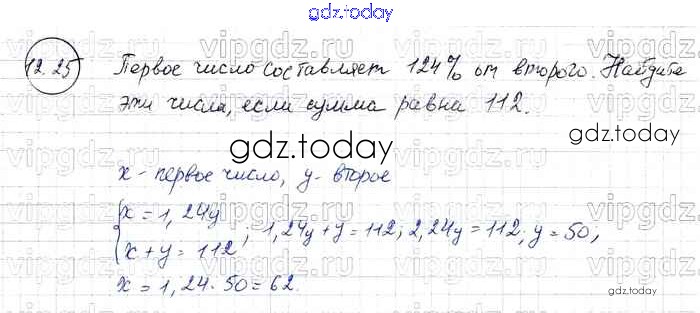 gdz.today
12.25 Первое число составляет 124% от второго. Найдите
эти числа, если сумма равна 112.
gdz.today
gdz.today
x - первое число, y - второе
{x = 1,24y
{x + y = 112 ; 1,24y + y = 112; 2,24y = 112; y = 50,
x = 1,24 · 50 = 62.
gdz.today
vipgdz.ru